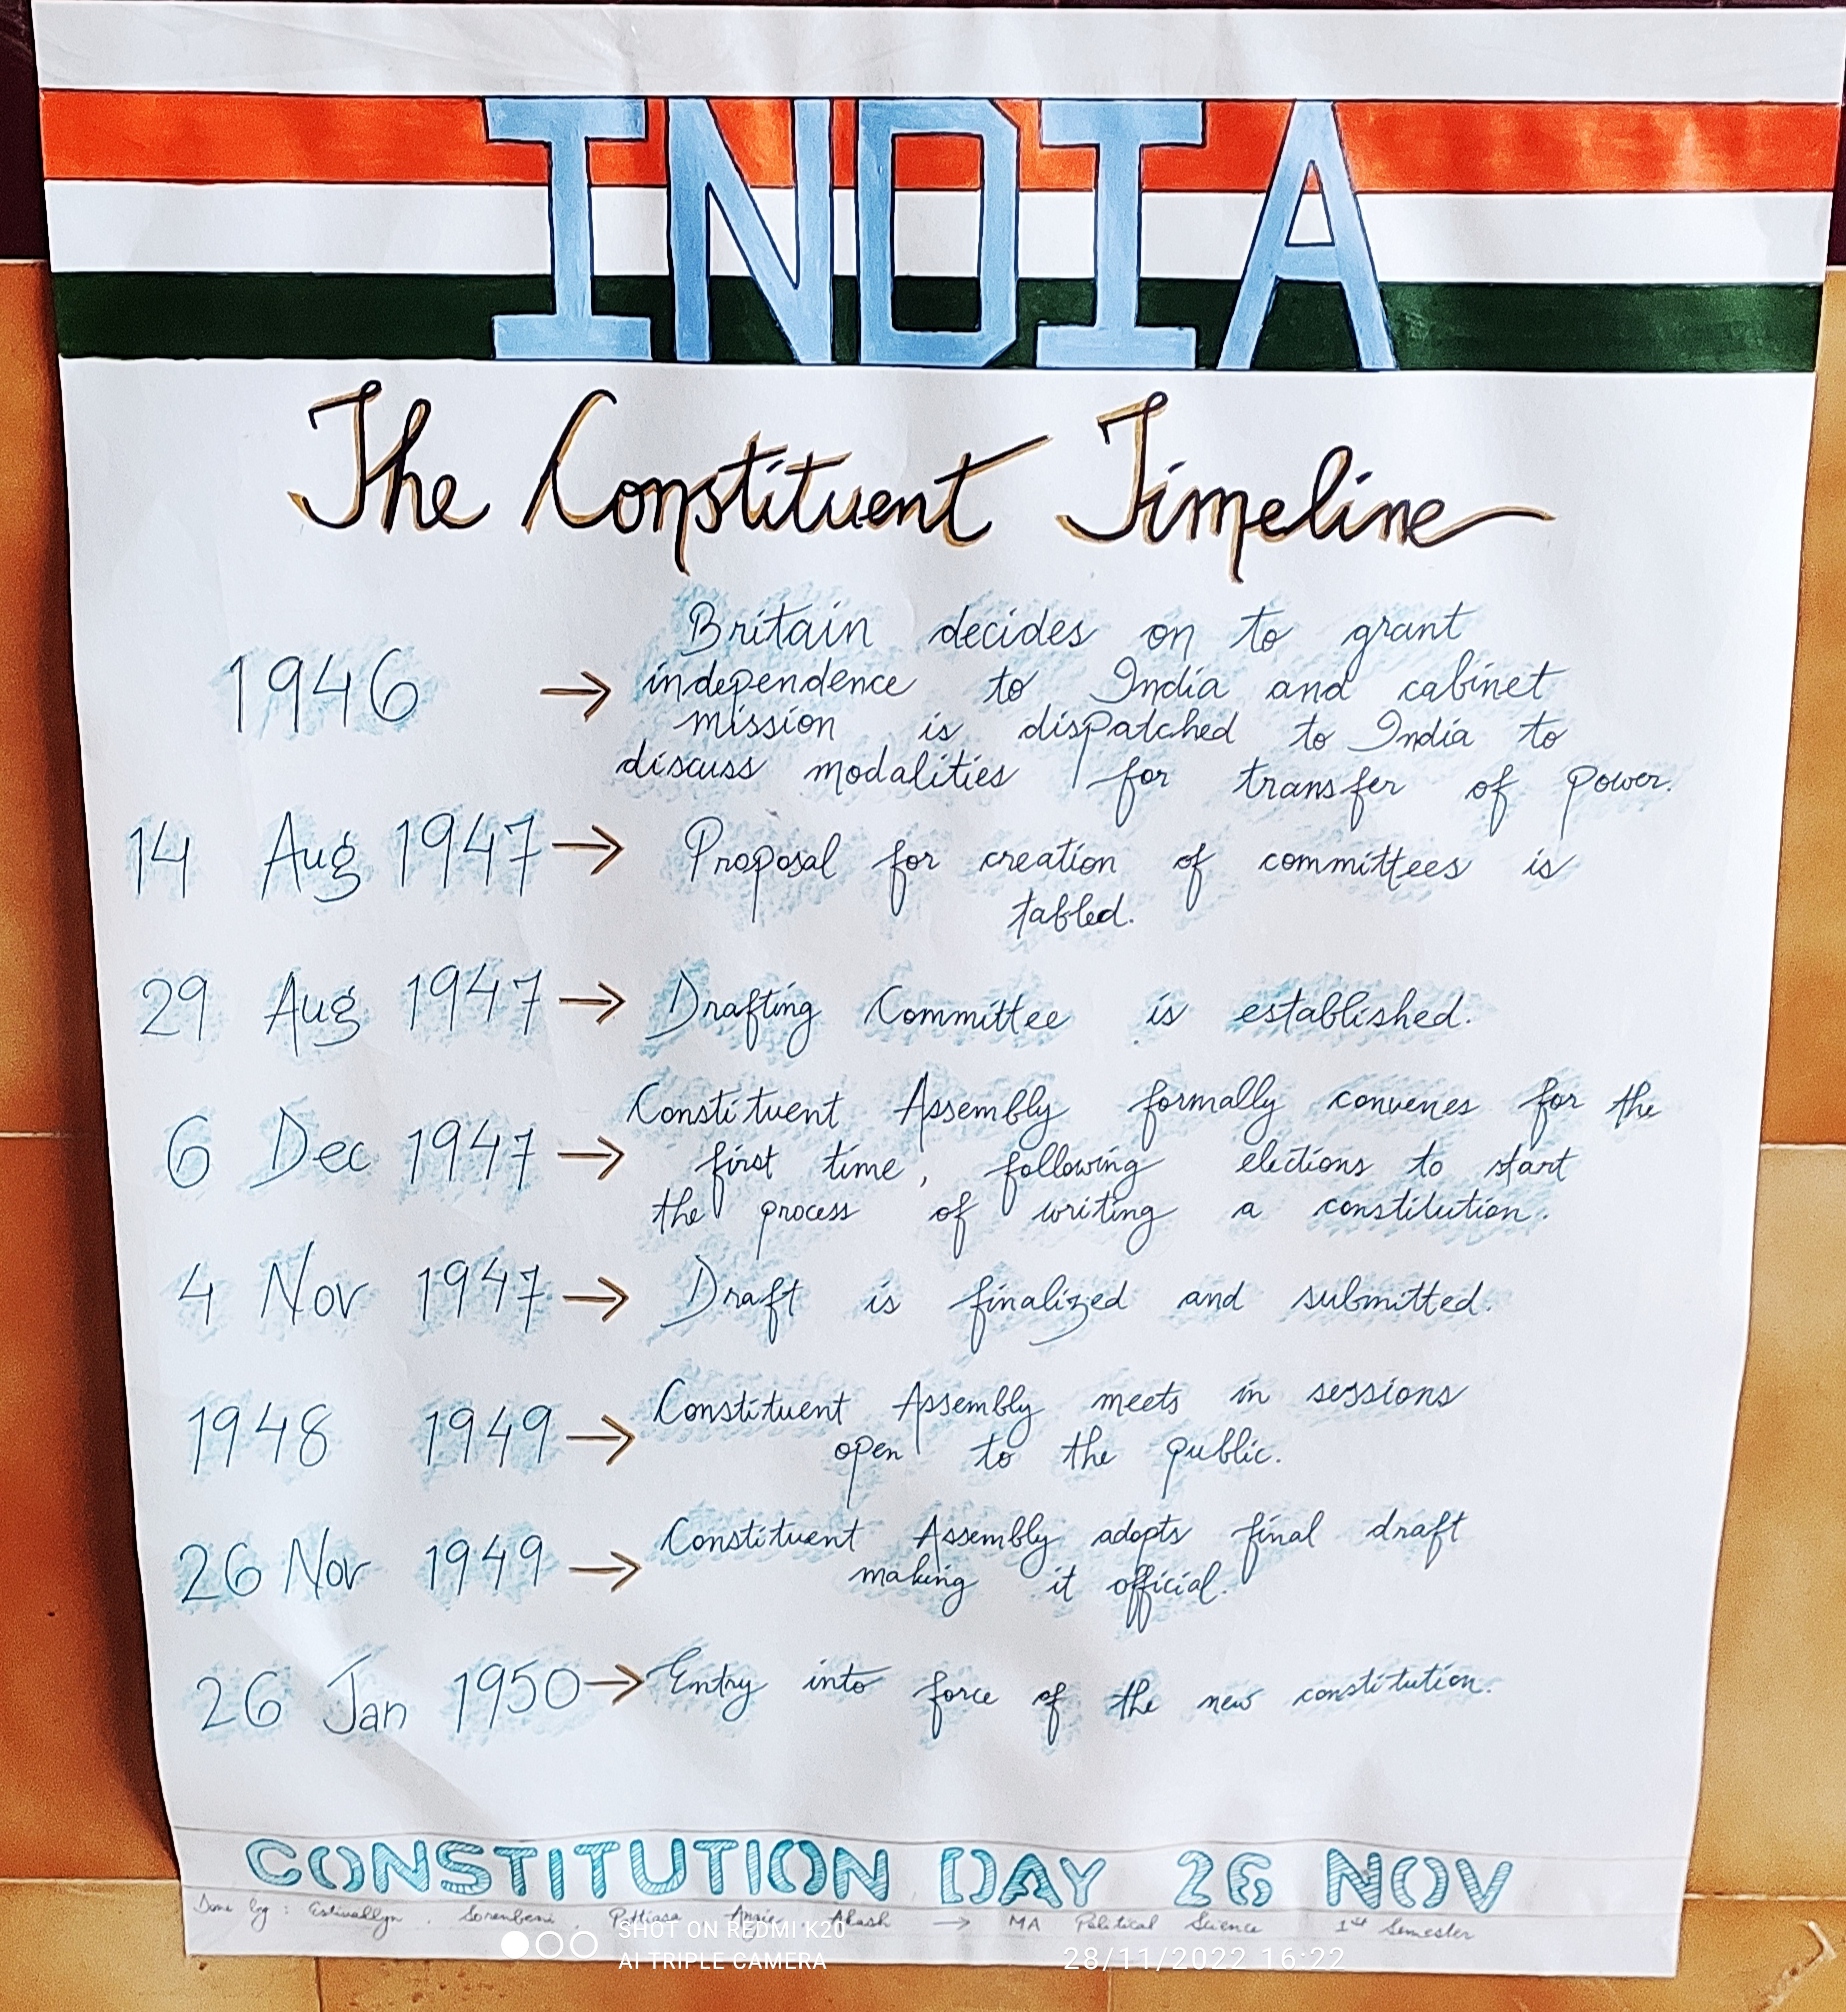 INDIA
The Constituent Timeline
Britain decides on to grant
1946 → independence to India and cabinet
mission is dispatched to India to
discuss modalities for transfer of power.
14 Aug 1947 → Proposal for creation of committees is
tabled.
29 Aug 1947 → Drafting Committee is established.
Constituent Assembly formally convenes for the
6 Dec 1947 → first time, following elections to start
the process of writing a constitution.
4 Nov 1947 → Draft is finalized and submitted.
1948 1949 → Constituent Assembly meets in sessions
open to the public.
26 Nov 1949 → Constituent Assembly adopts final draft
making it official.
26 Jan 1950 → Entry into force of the new constitution.
CONSTITUTION DAY 26 NOV
Done by: Akash → MA Political Science 1st Semester
SHOT ON REDMI K20
AI TRIPLE CAMERA
28/11/2022 16:22